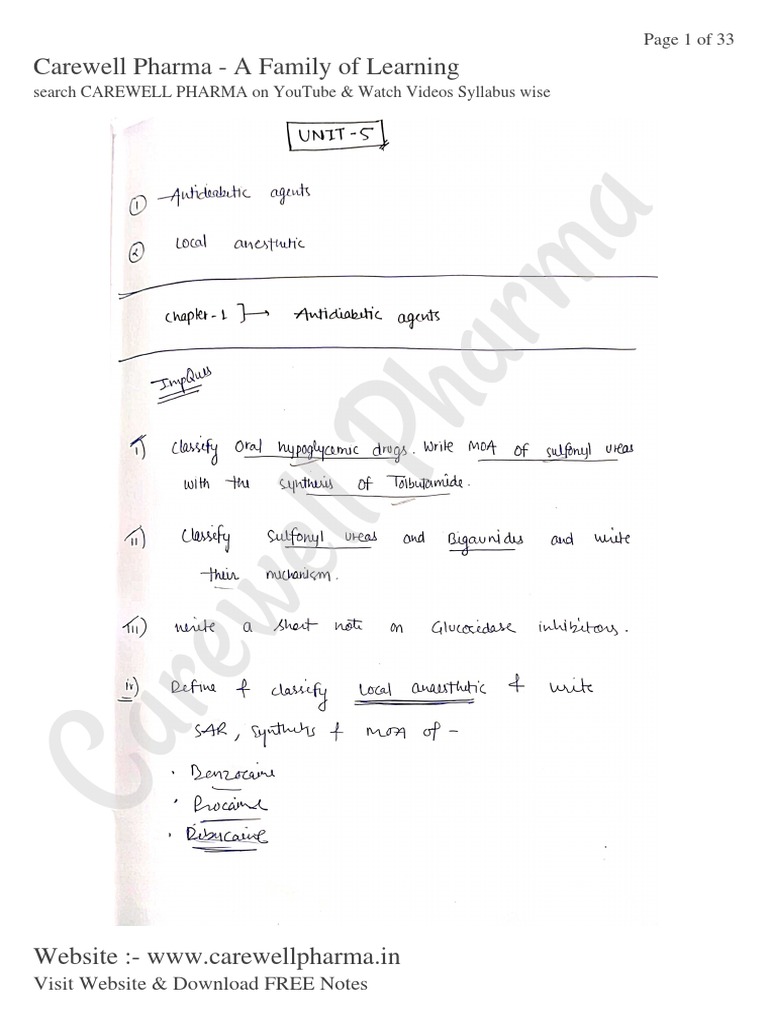 Page 1 of 33
Carewell Pharma - A Family of Learning
search CAREWELL PHARMA on YouTube & Watch Videos Syllabus wise
UNIT-5
① Antidiabetic agents
② Local anesthetic
Chapter-1 ]→ Antidiabetic agents
Imp Ques
i) Classify Oral hypoglycemic drugs. Write MOA of sulfonyl ureas
with the synthesis of Tolbutamide.
ii) Classify Sulfonyl ureas and Bigaunides and write
their mechanism.
iii) write a short note on Glucocidase inhibitors.
iv) Define & classify Local anaesthetic & write
SAR, Synthesis & MOA of -
· Benzocaine
· Procaine
· Dibucaine
Carewell Pharma
Website :- www.carewellpharma.in
Visit Website & Download FREE Notes